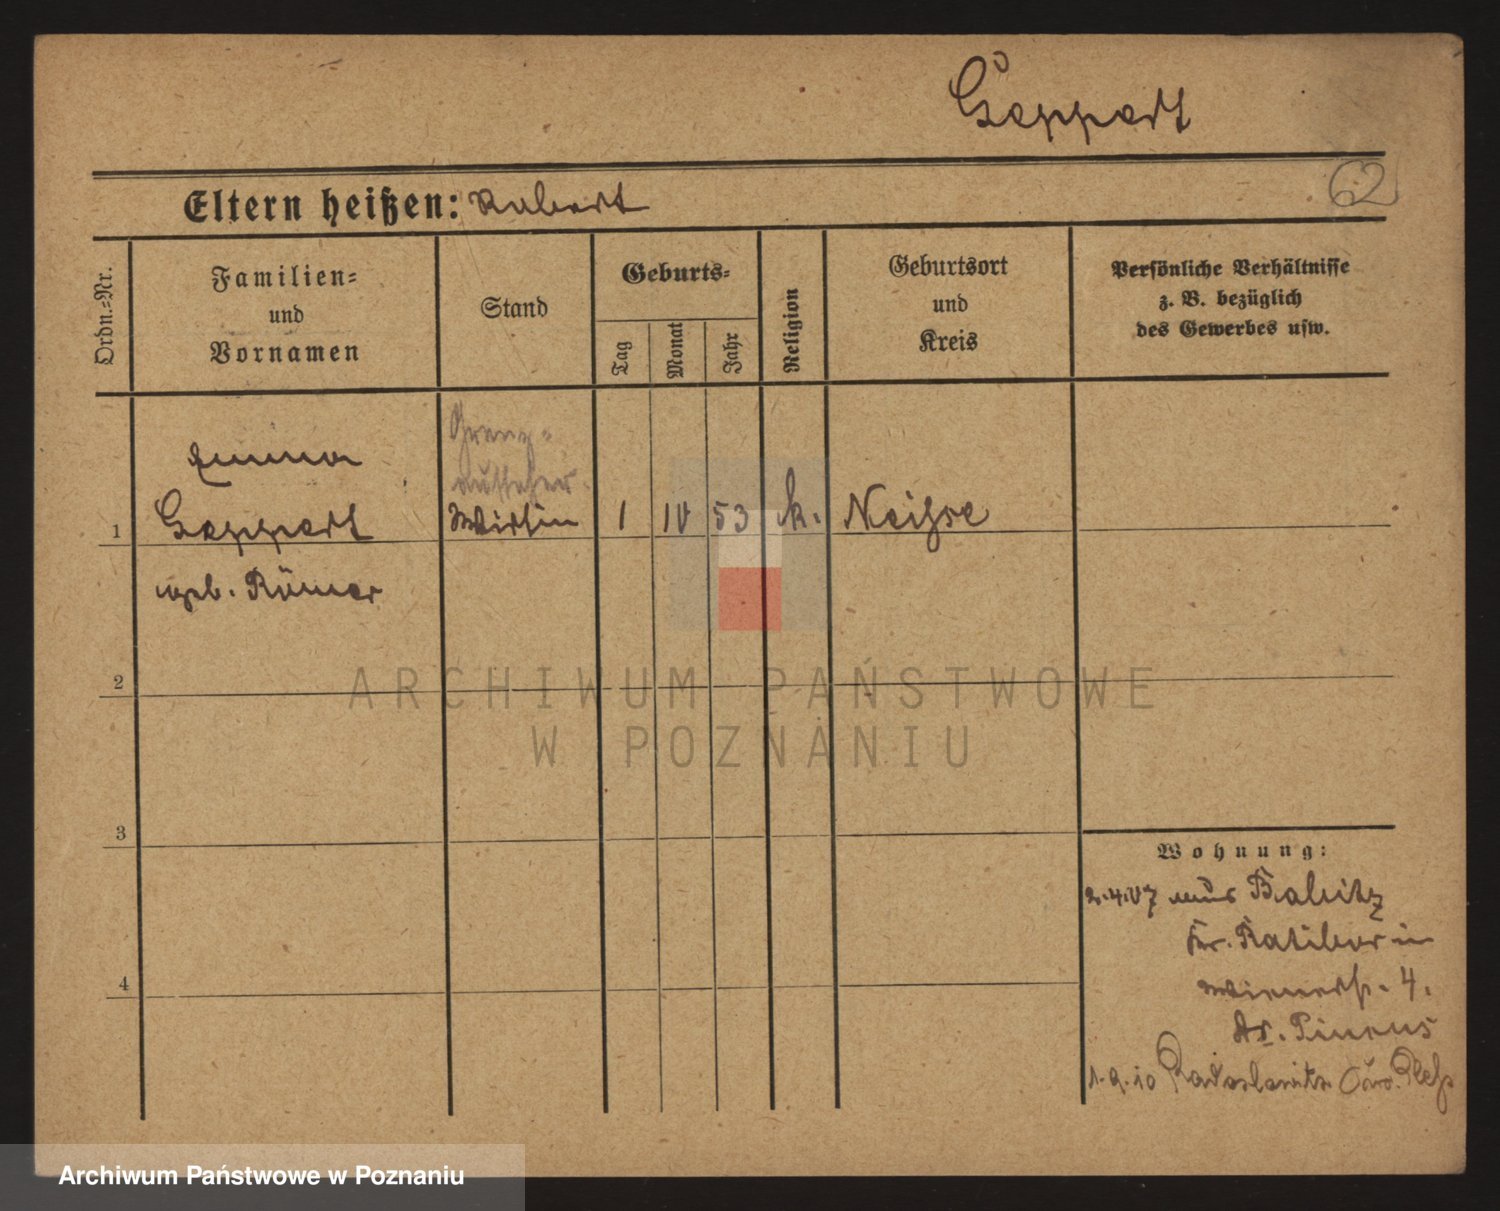 Geppert
62
Eltern heißen: Robert
Ordn.-Nr.
Familien-
und
Vornamen
Stand
Geburts-
Tag
Monat
Jahr
Religion
Geburtsort
und
Kreis
Persönliche Verhältnisse
z. B. bezüglich
des Gewerbes usw.
Grenz-
aufseher
Emma
1 Geppert Wirtin 1 IV 53 k. Neisse
geb. Römer
2
3
4
ARCHIWUM PAŃSTWOWE
W POZNANIU
Wohnung:
2.4.07 aus Babitz
Kr. Ratibor in
Wienerstr. 4.
Dr. Pincus
1.9.10
Archiwum Państwowe w Poznaniu